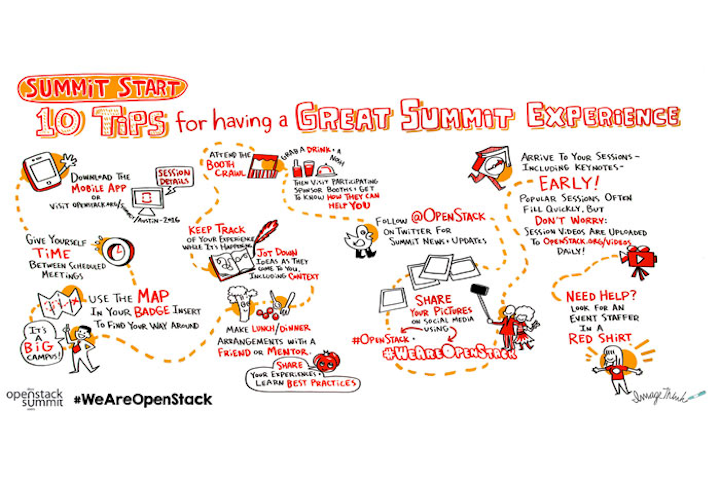 SUMMIT START
10 TIPS for having a GREAT SUMMIT EXPERIENCE
DOWNLOAD THE
MOBILE APP
OR VISIT OPENSTACK.ORG/
SUMMIT/AUSTIN-2016
SESSION
DETAILS
GIVE YOURSELF
TIME
BETWEEN SCHEDULED
MEETINGS
USE THE MAP
IN YOUR BADGE INSERT
TO FIND YOUR WAY AROUND
IT'S
A
BIG
CAMPUS!
ATTEND THE
BOOTH
CRAWL
GRAB A DRINK + A
NOSH
THEN VISIT PARTICIPATING
SPONSOR BOOTHS + GET
TO KNOW HOW THEY CAN
HELP YOU
KEEP TRACK
OF YOUR EXPERIENCE
WHILE IT'S HAPPENING
JOT DOWN
IDEAS AS THEY
COME TO YOU,
INCLUDING CONTEXT
MAKE LUNCH/DINNER
ARRANGEMENTS WITH A
FRIEND OR MENTOR.
SHARE
YOUR EXPERIENCES +
LEARN BEST PRACTICES
FOLLOW @OPENSTACK
ON TWITTER FOR
SUMMIT NEWS + UPDATES
SHARE
YOUR PICTURES
ON SOCIAL MEDIA
USING
#OPENSTACK +
#WEAREOPENSTACK
ARRIVE TO YOUR SESSIONS -
INCLUDING KEYNOTES -
EARLY!
POPULAR SESSIONS OFTEN
FILL QUICKLY, BUT
DON'T WORRY:
SESSION VIDEOS ARE UPLOADED
TO OPENSTACK.ORG/VIDEOS
DAILY!
NEED HELP?
LOOK FOR AN
EVENT STAFFER
IN A
RED SHIRT
openstack
summit
#WeAreOpenStack
ImageThink